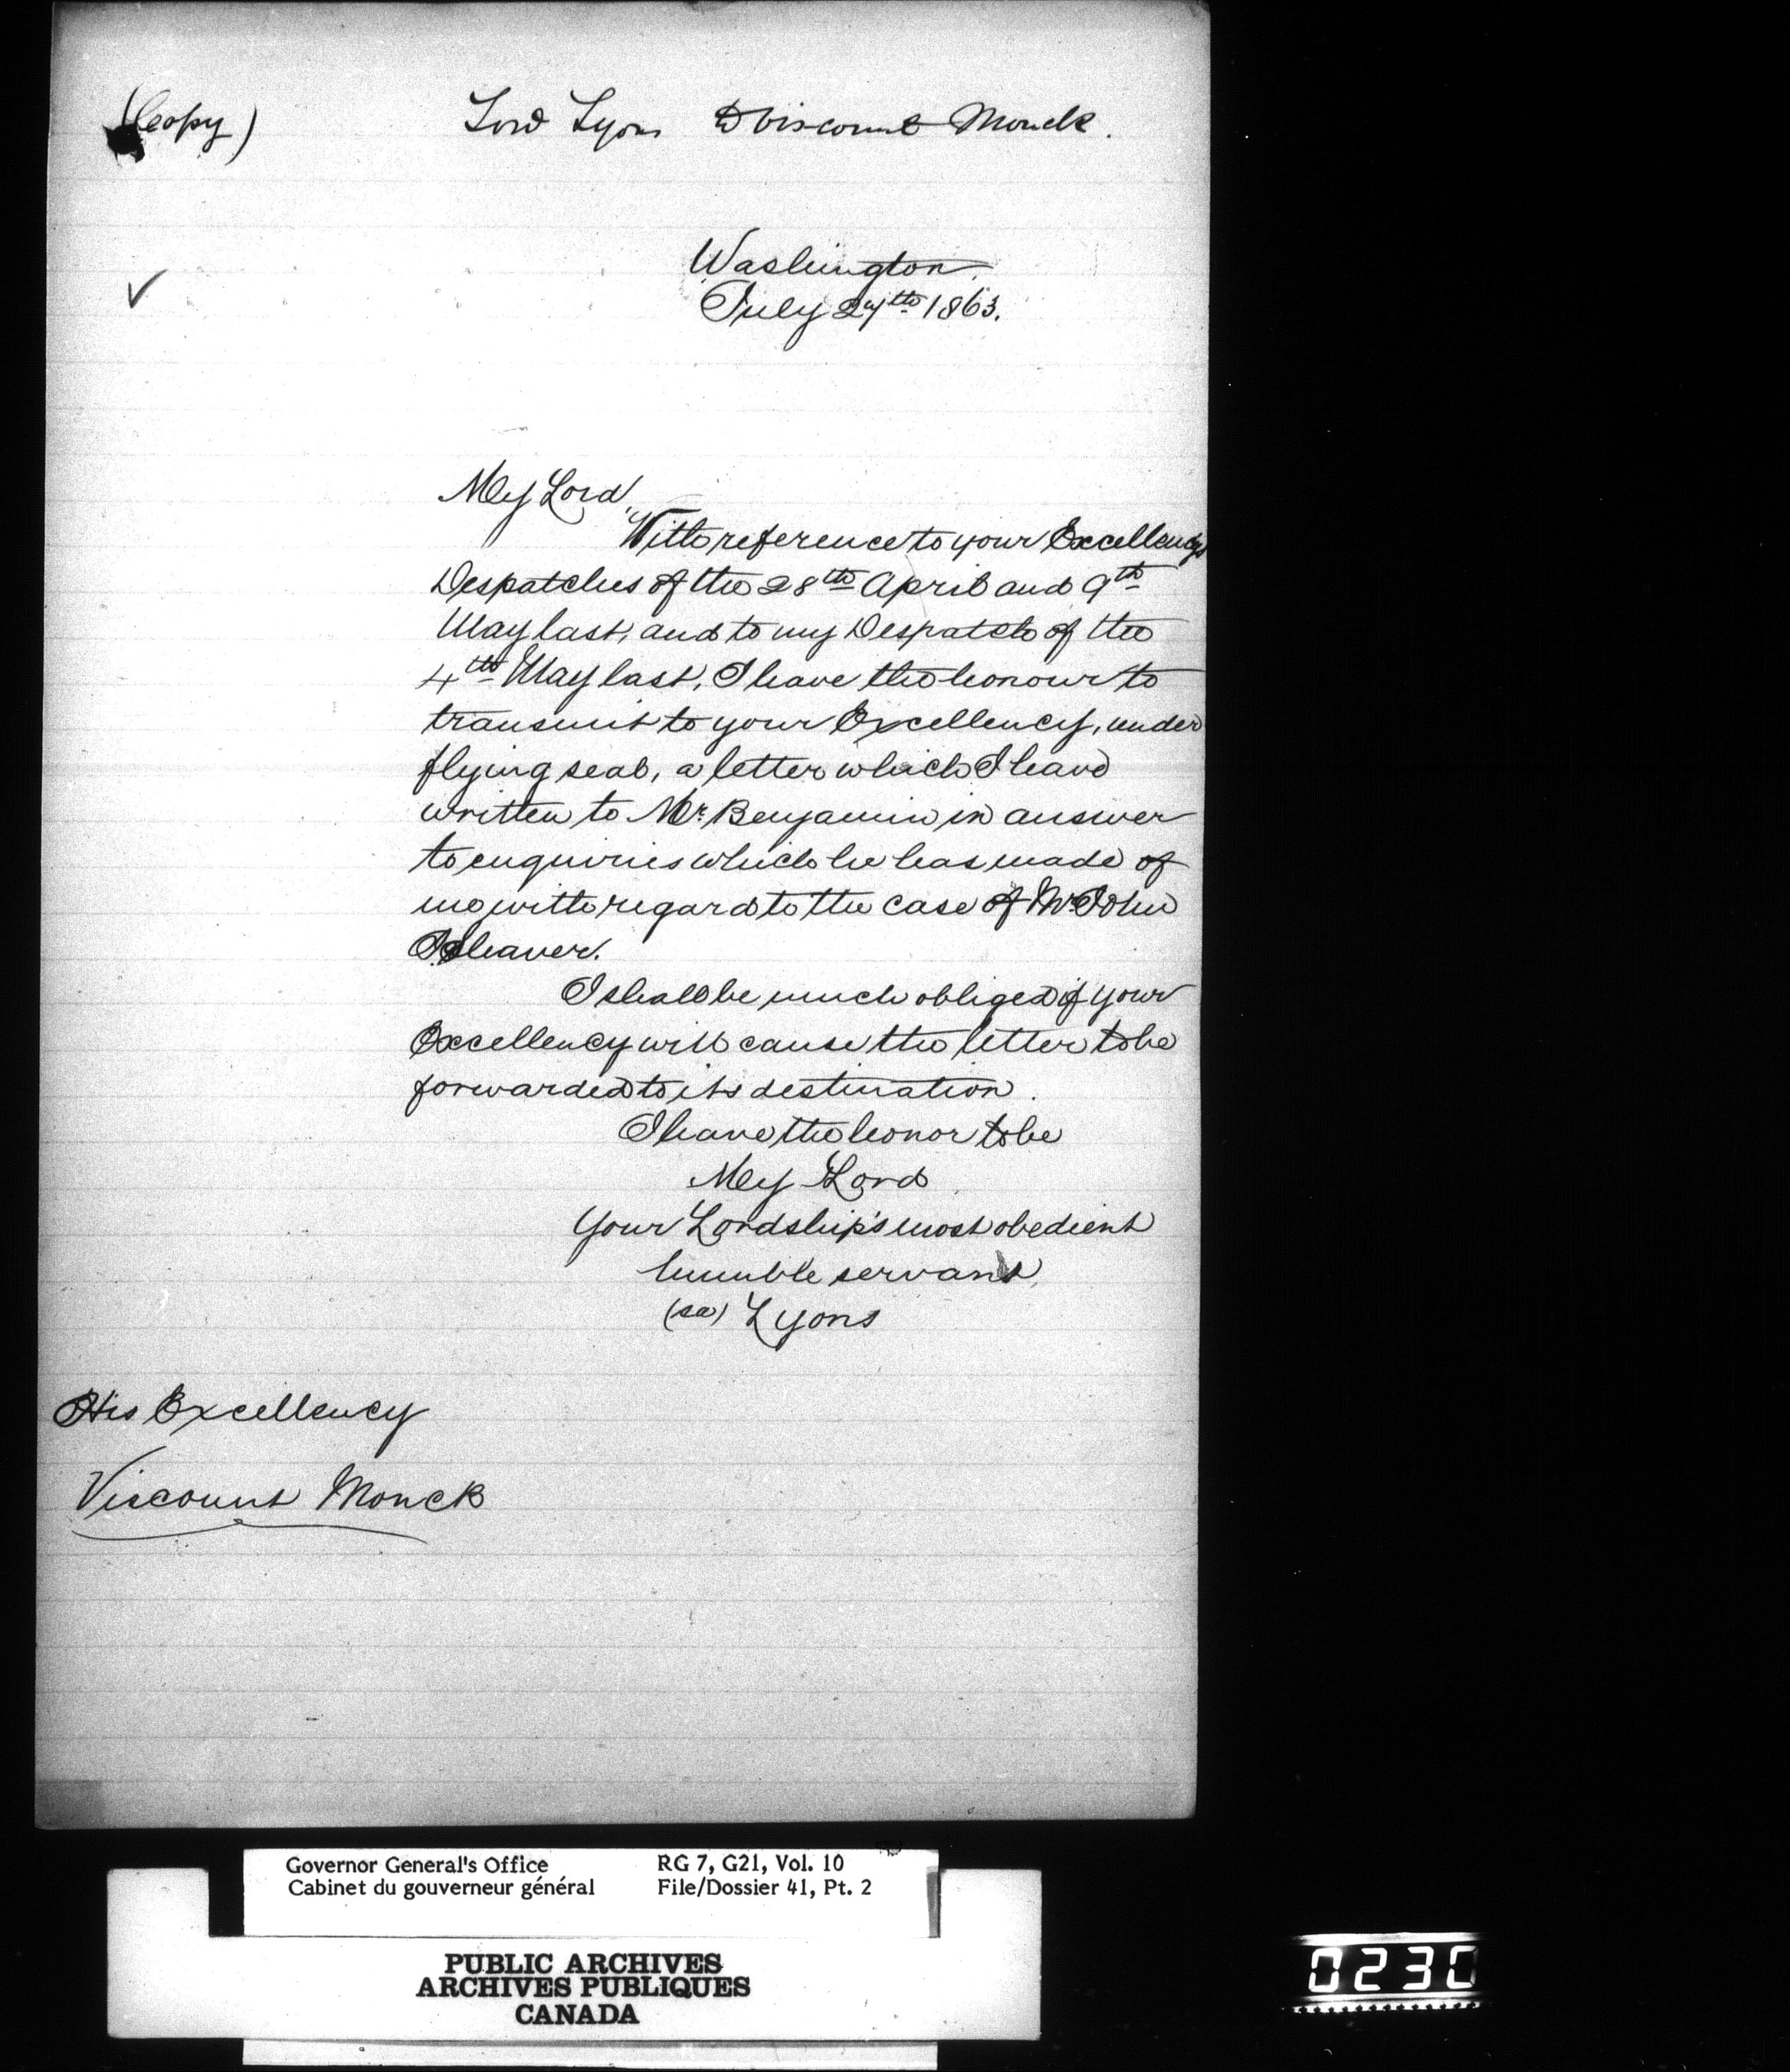 (Copy)
Lord Lyons to Viscount Monck.
Washington.
July 27th 1863.
My Lord,
With reference to your Excellency's
Despatches of the 28th April and 9th
May last, and to my Despatch of the
4th May last, I have the honour to
transmit to your Excellency, under
flying seal, a letter which I have
written to Mr. Benjamin in answer
to enquiries which he has made of
me with regard to the case of Mr John
Shaver.
I shall be much obliged if your
Excellency will cause the letter to be
forwarded to its destination.
I have the honor to be
My Lord
Your Lordship's most obedient
humble servant,
(sd) Lyons
His Excellency
Viscount Monck
Governor General's Office
Cabinet du gouverneur général
RG 7, G21, Vol. 10
File/Dossier 41, Pt. 2
PUBLIC ARCHIVES
ARCHIVES PUBLIQUES
CANADA
0230